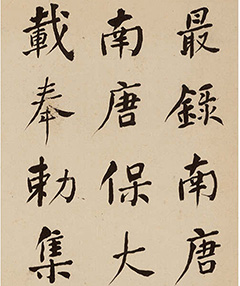 最錄南唐
南唐保大
載奉勅集